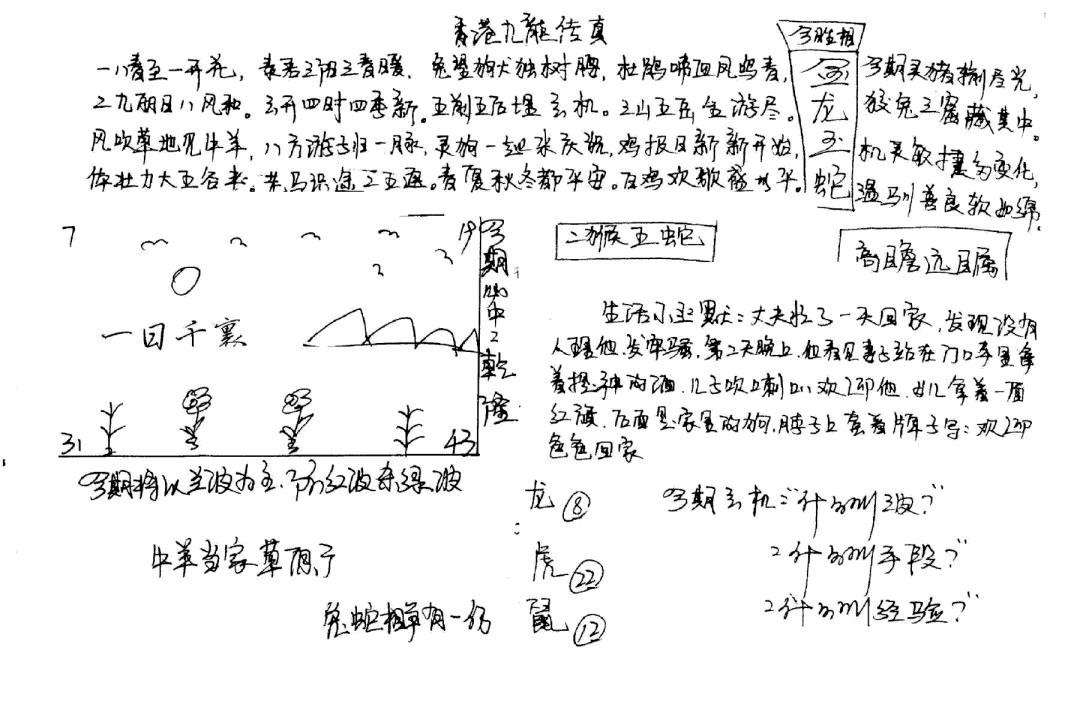 香港九龍传真
今期生肖
金龙玉蛇
一八春至一开花，春君三阳三春暖，兔望狗犬独树脾，杜鹃啼血凤鸣春，
二九朝日八风和。云开四时四季新。五湖五后埋玄机。三山五岳全游尽。
风吹草地见牛羊，八方游子归一脉，灵狗一起来庆祝，鸡报日新新开始，
体壮力大五谷来。老马识途工五迹。春夏秋冬都平安。百鸡欢歌盛水平。
今期灵猪输尽光，
狡兔三窟藏其中。
机灵敏捷多变化，
温驯善良软如绵。
7
19
一日千裏
31
43
今期必中2乾隆
二猴五蛇
高瞻远瞩
生活小幽默：丈夫忙了一天回家，发现没有
人理他，发牢骚，第2天晚上，他看见妻子站在门口手里拿
着酒，儿子吹口喇叭欢迎他，女儿拿着一面
红旗，后面是家里的狗，脖子上套着牌子写：欢迎
爸爸回家
今期将以兰波为主，防红波杀绿波
牛羊当家草有了
兔蛇相单有一份
龙 ⑧
虎 ㉒
鼠 ⑫
今期玄机："什么叫 波？"
2什么叫手段？"
2什么叫经验？"